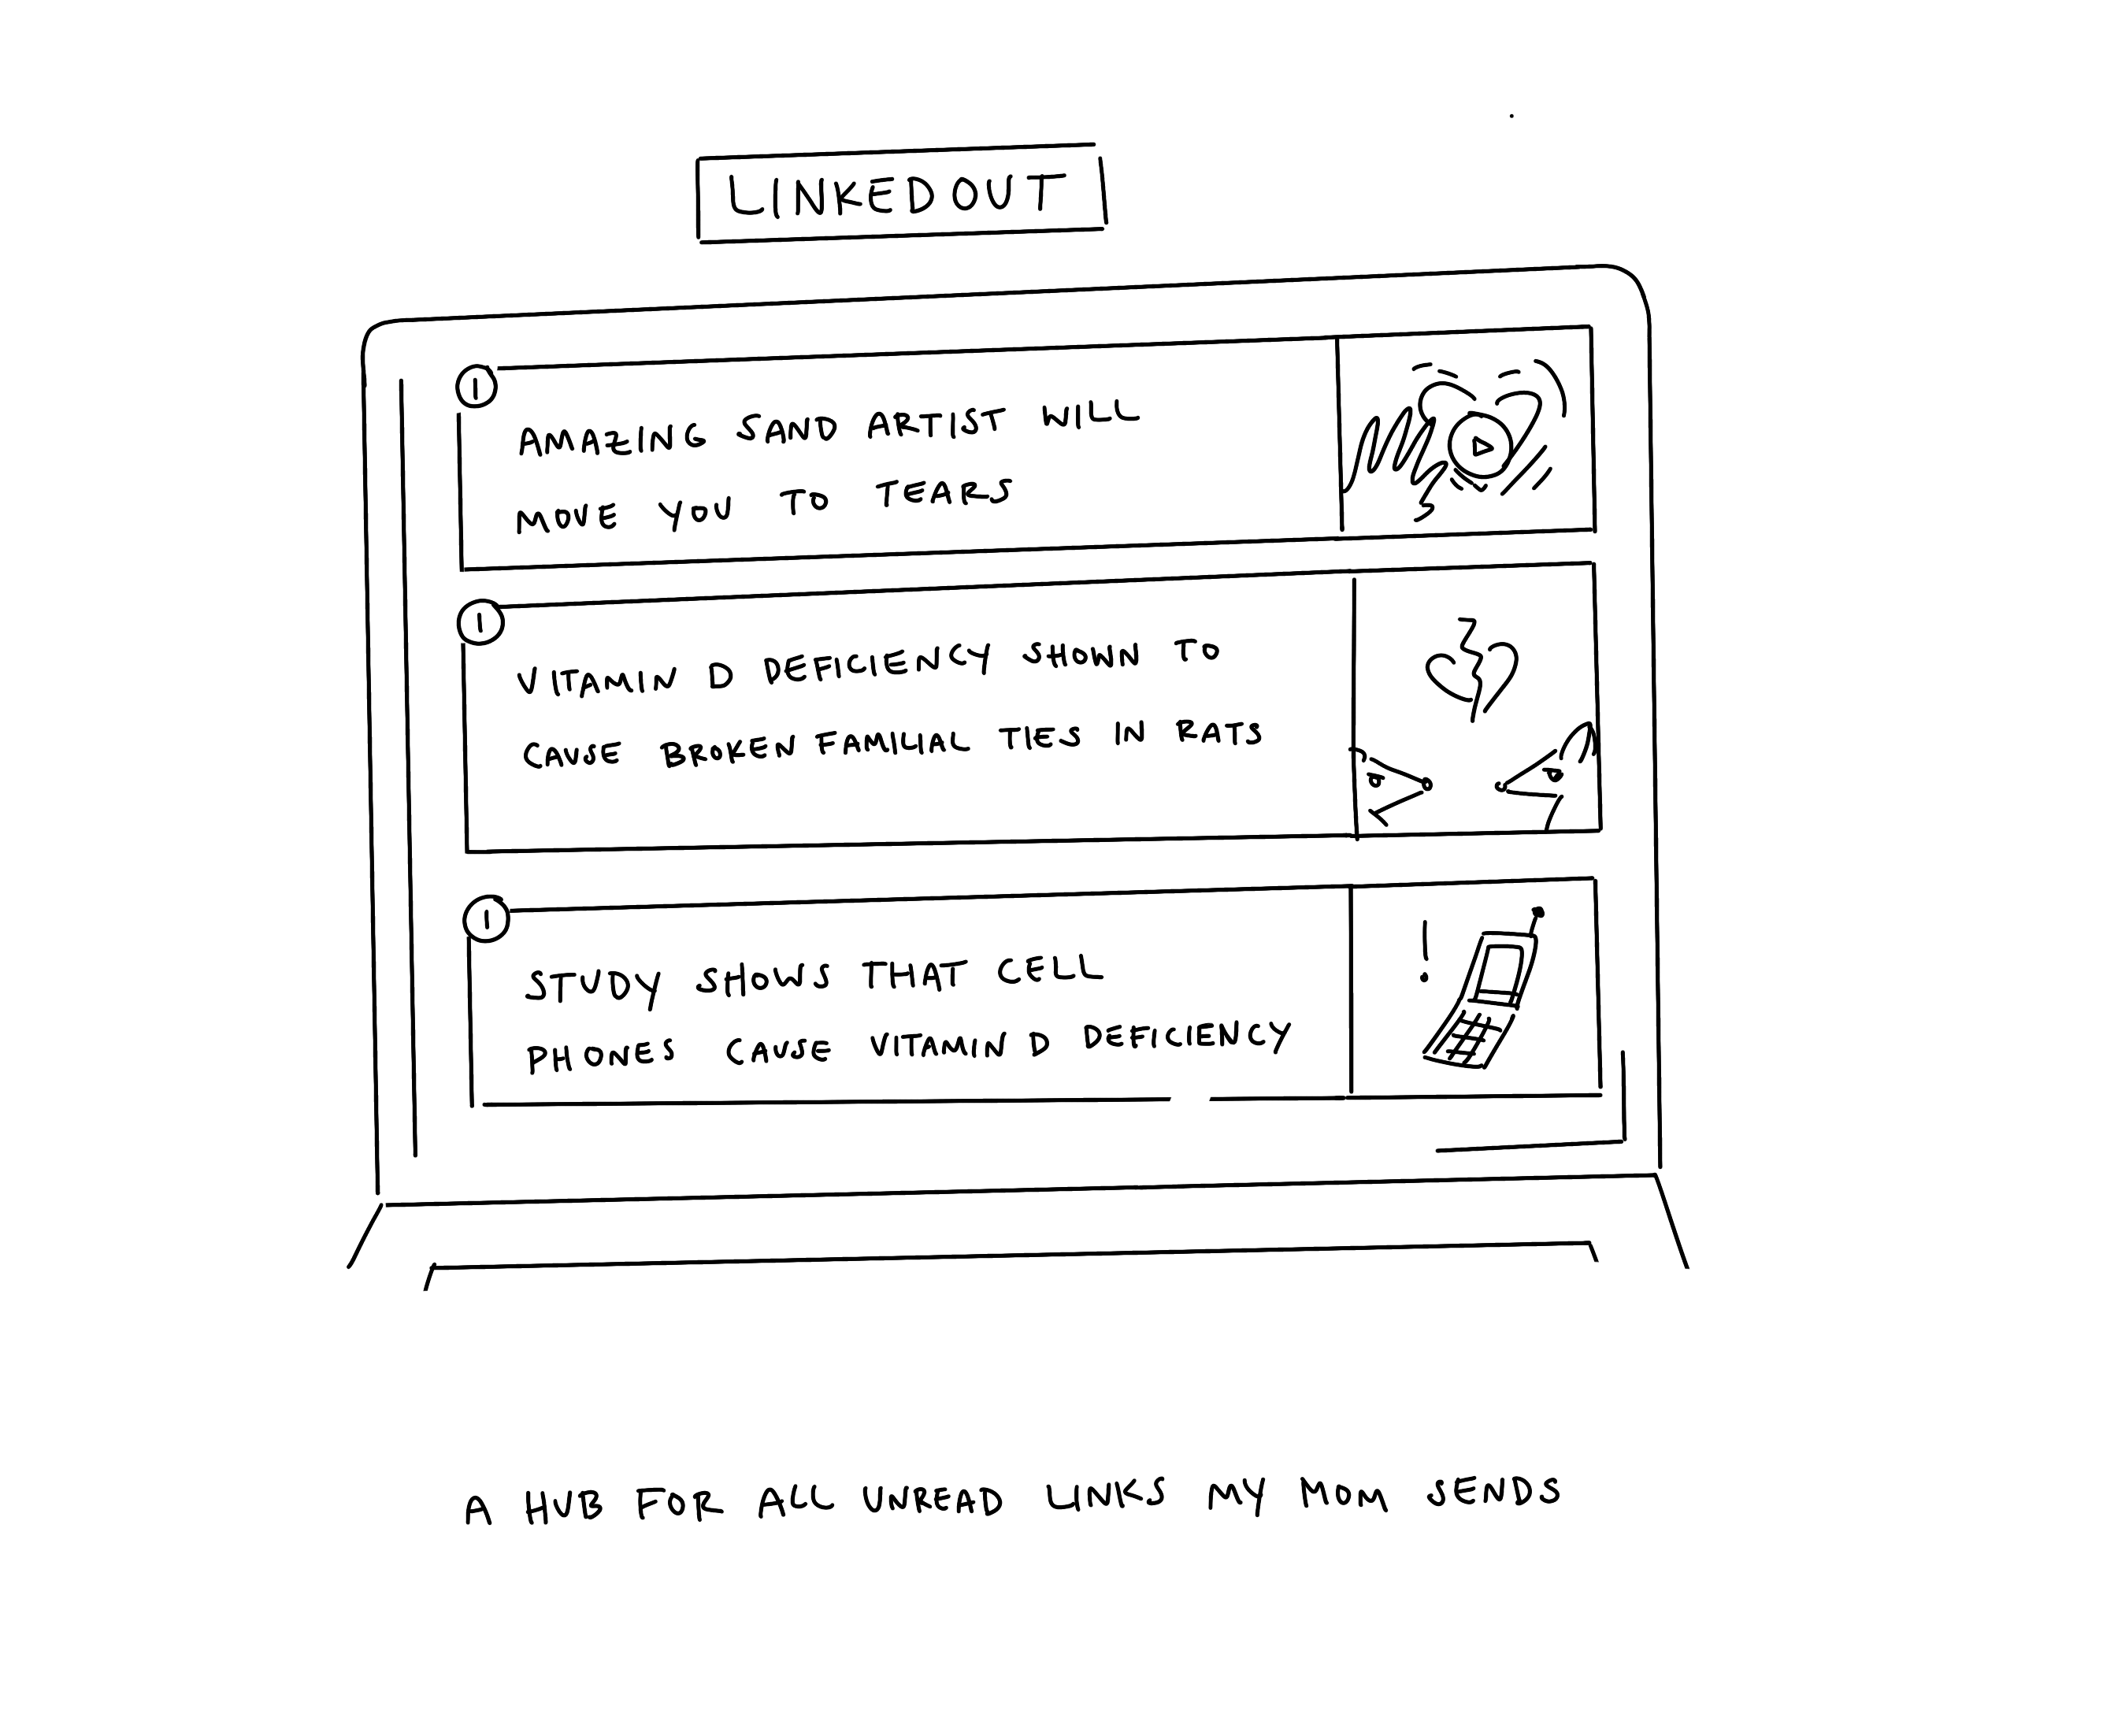 LINKEDOUT
1
AMAZING SAND ARTIST WILL
MOVE YOU TO TEARS
1
VITAMIN D DEFICIENCY SHOWN TO
CAUSE BROKEN FAMILIAL TIES IN RATS
1
STUDY SHOWS THAT CELL
PHONES CAUSE VITAMIN D DEFICIENCY
A HUB FOR ALL UNREAD LINKS MY MOM SENDS